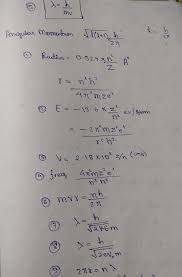 ⑤ λ = h/mv
Angular Momentum √l(l+1) h/2π
① Radius = 0.529 n²/Z A°
r = n²h²/4π²mze²
② E = -13.6 z²/n² ev/atom
= -2π²mz²e⁴/n²h²
③ V = 2.18×10⁶ z/n (m/s)
④ freq 4π²mz²e⁴/n³h³
⑥ mvr = nh/2π
⑦ λ = h/√2KE m
⑧ λ = h/√2eVm
⑨ 2πr = nλ